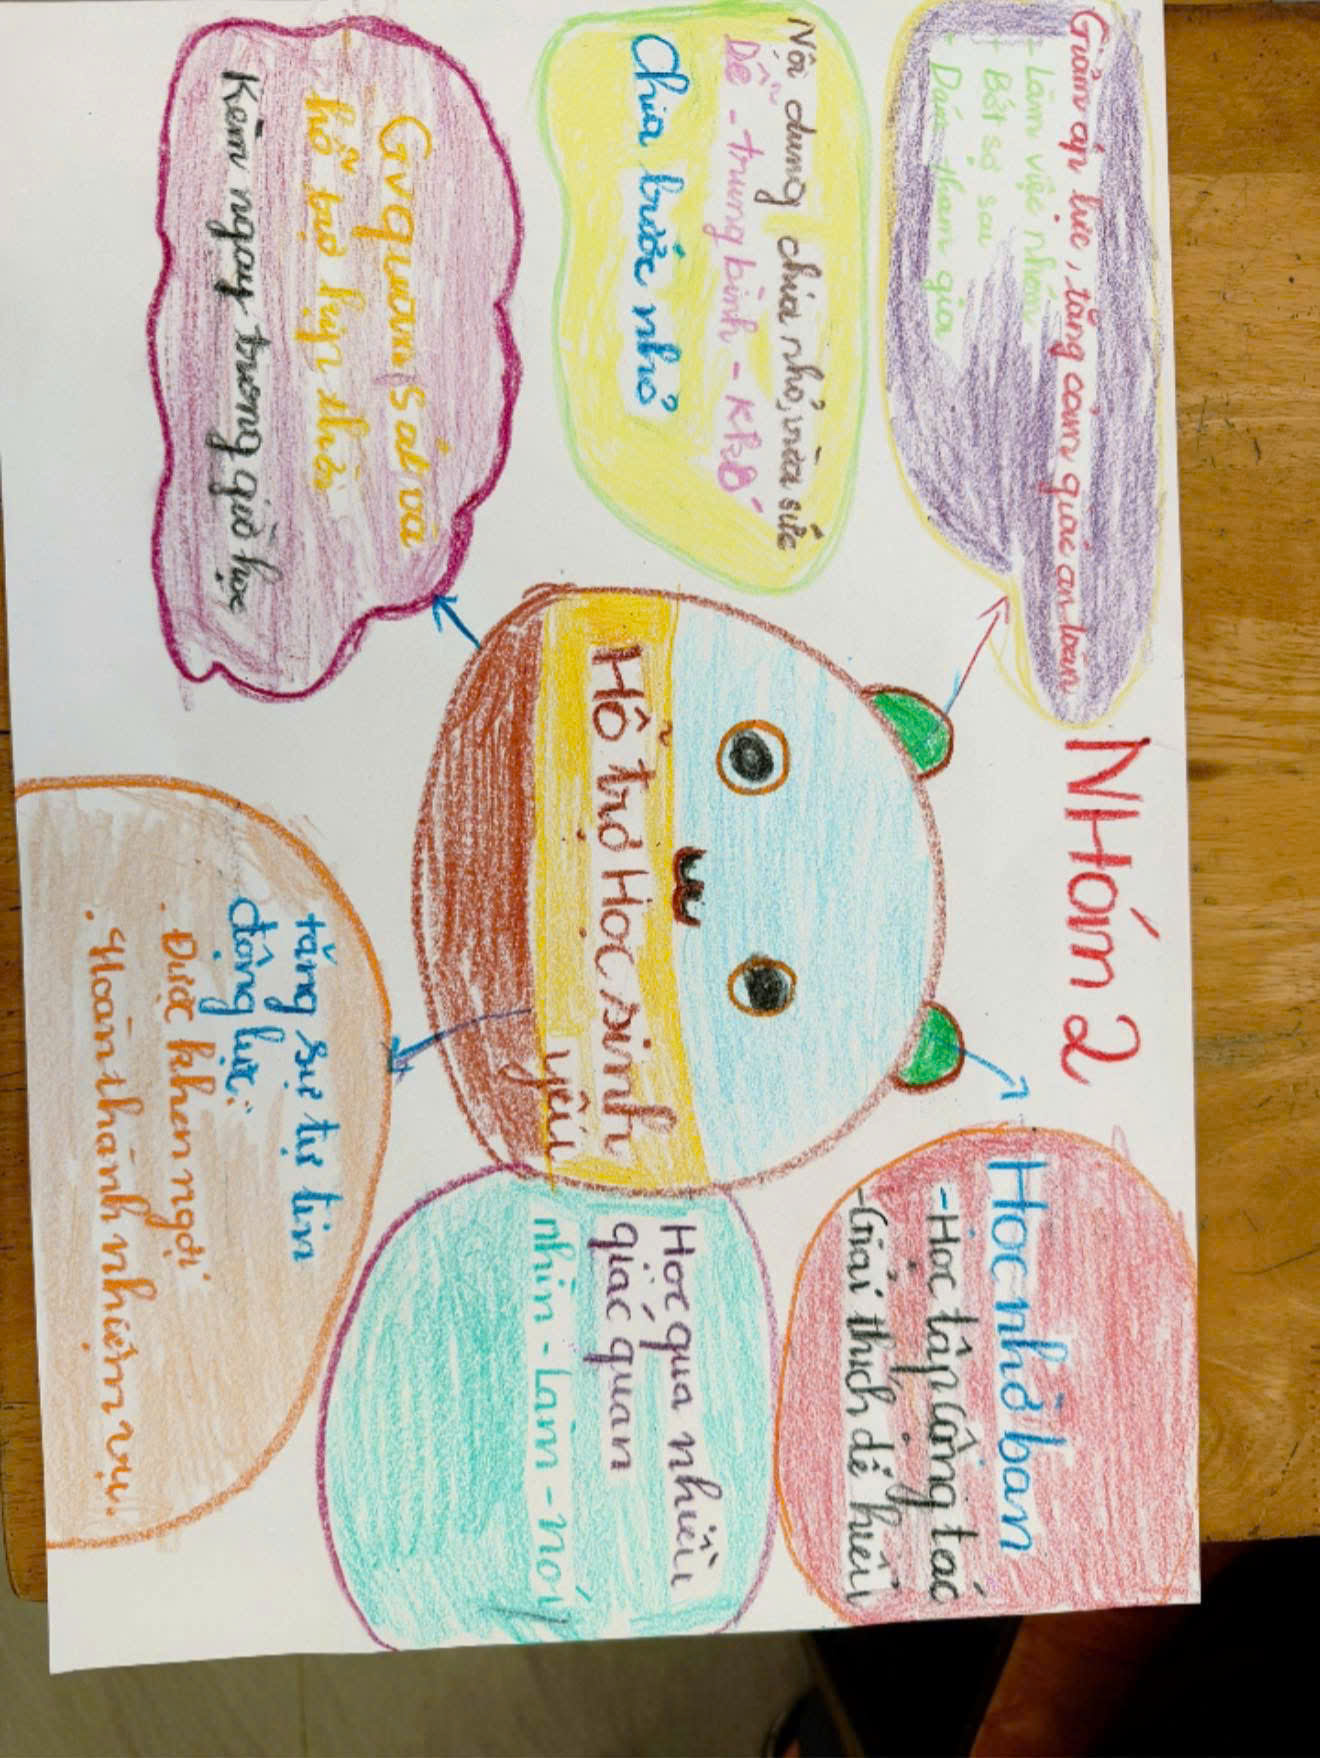 NHóm 2
Giảm áp lực, tăng cảm giác an toàn
- Làm việc nhóm
+ Bớt sợ sai
+ Dám tham gia
Nội dung chia nhỏ, vừa sức
Dễ - trung bình - Khó
Chia bước nhỏ
GV quan Sát và
hỗ trợ kịp thời
Kèm ngay trong giờ học
Hỗ trợ Học sinh
yếu
Học nhờ bạn
- Học tập cộng tác
- Giải thích dễ hiểu
Học qua nhiều
giác quan
nhìn - Làm - nói
tăng sự tự tin
động lực:
. Được khen ngợi
. Hoàn thành nhiệm vụ.